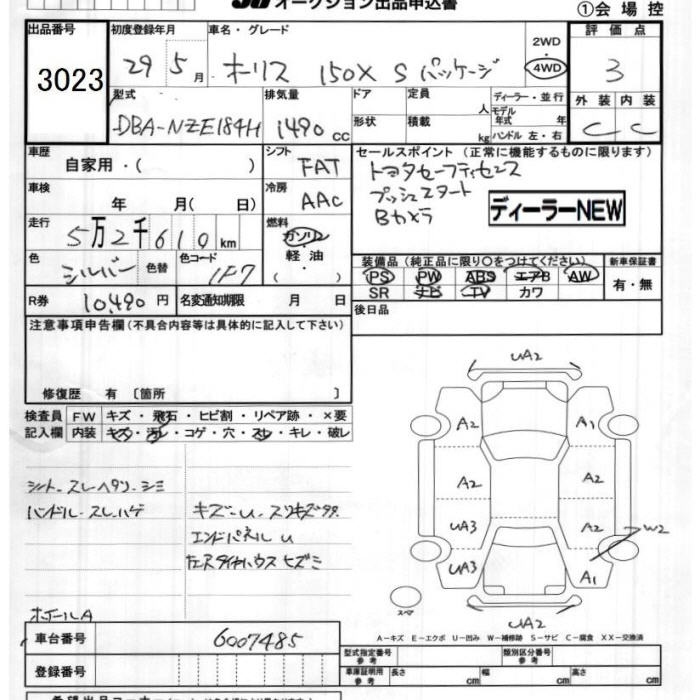 オークション出品申込書
①会場控
出品番号 初度登録年月 車名・グレード 2WD・4WD 評価点
3023 29年5月 オーリス 150X Sパッケージ 3
型式 排気量 ドア 定員 人 ディーラー・並行 外装 内装
DBA-NZE184H 1490cc 形状 積載 kg モデル年式 年 ハンドル 左・右 C C
車歴 シフト セールスポイント(正常に機能するものに限ります)
自家用・( ) FAT トヨタセーフティセンス
車検 冷房 プッシュスタート
年 月( 日) AAC Bカメラ ディーラーNEW
走行 燃料
5万2千610km ガソリン・軽油・( )
色 色替 色コード 装備品(純正品に限り〇をつけてください) 新車保証書
シルバー 1F7 PS PW ABS エアB AW 有・無
SR ナビ TV カワ
R券 10,490円 名変通知期限 月 日 後日品
注意事項申告欄(不具合内容等は具体的に記入して下さい)
修復歴 有〔箇所 〕
検査員 FW キズ・飛石・ヒビ割・リペア跡・×要
記入欄 内装 キズ・汚レ・コゲ・穴・スレ・キレ・破レ
シート.スレヘタリ.シミ
ハンドル.スレハゲ キズー.U.スリキズ
エンドパネル U
左スタイヤハウス ヒズミ
ホイールA
UA2
A2 A1
A2 A2
UA3 A2 W2
UA3 A1
スペア UA2
A−キズ E−エクボ U−凹み W−補修跡 S−サビ C−腐食 XX−交換済
車台番号 6007485
型式指定番号 参考 類別区分番号 参考
登録番号 車庫証明用 参考 長さ cm 幅 cm 高さ cm